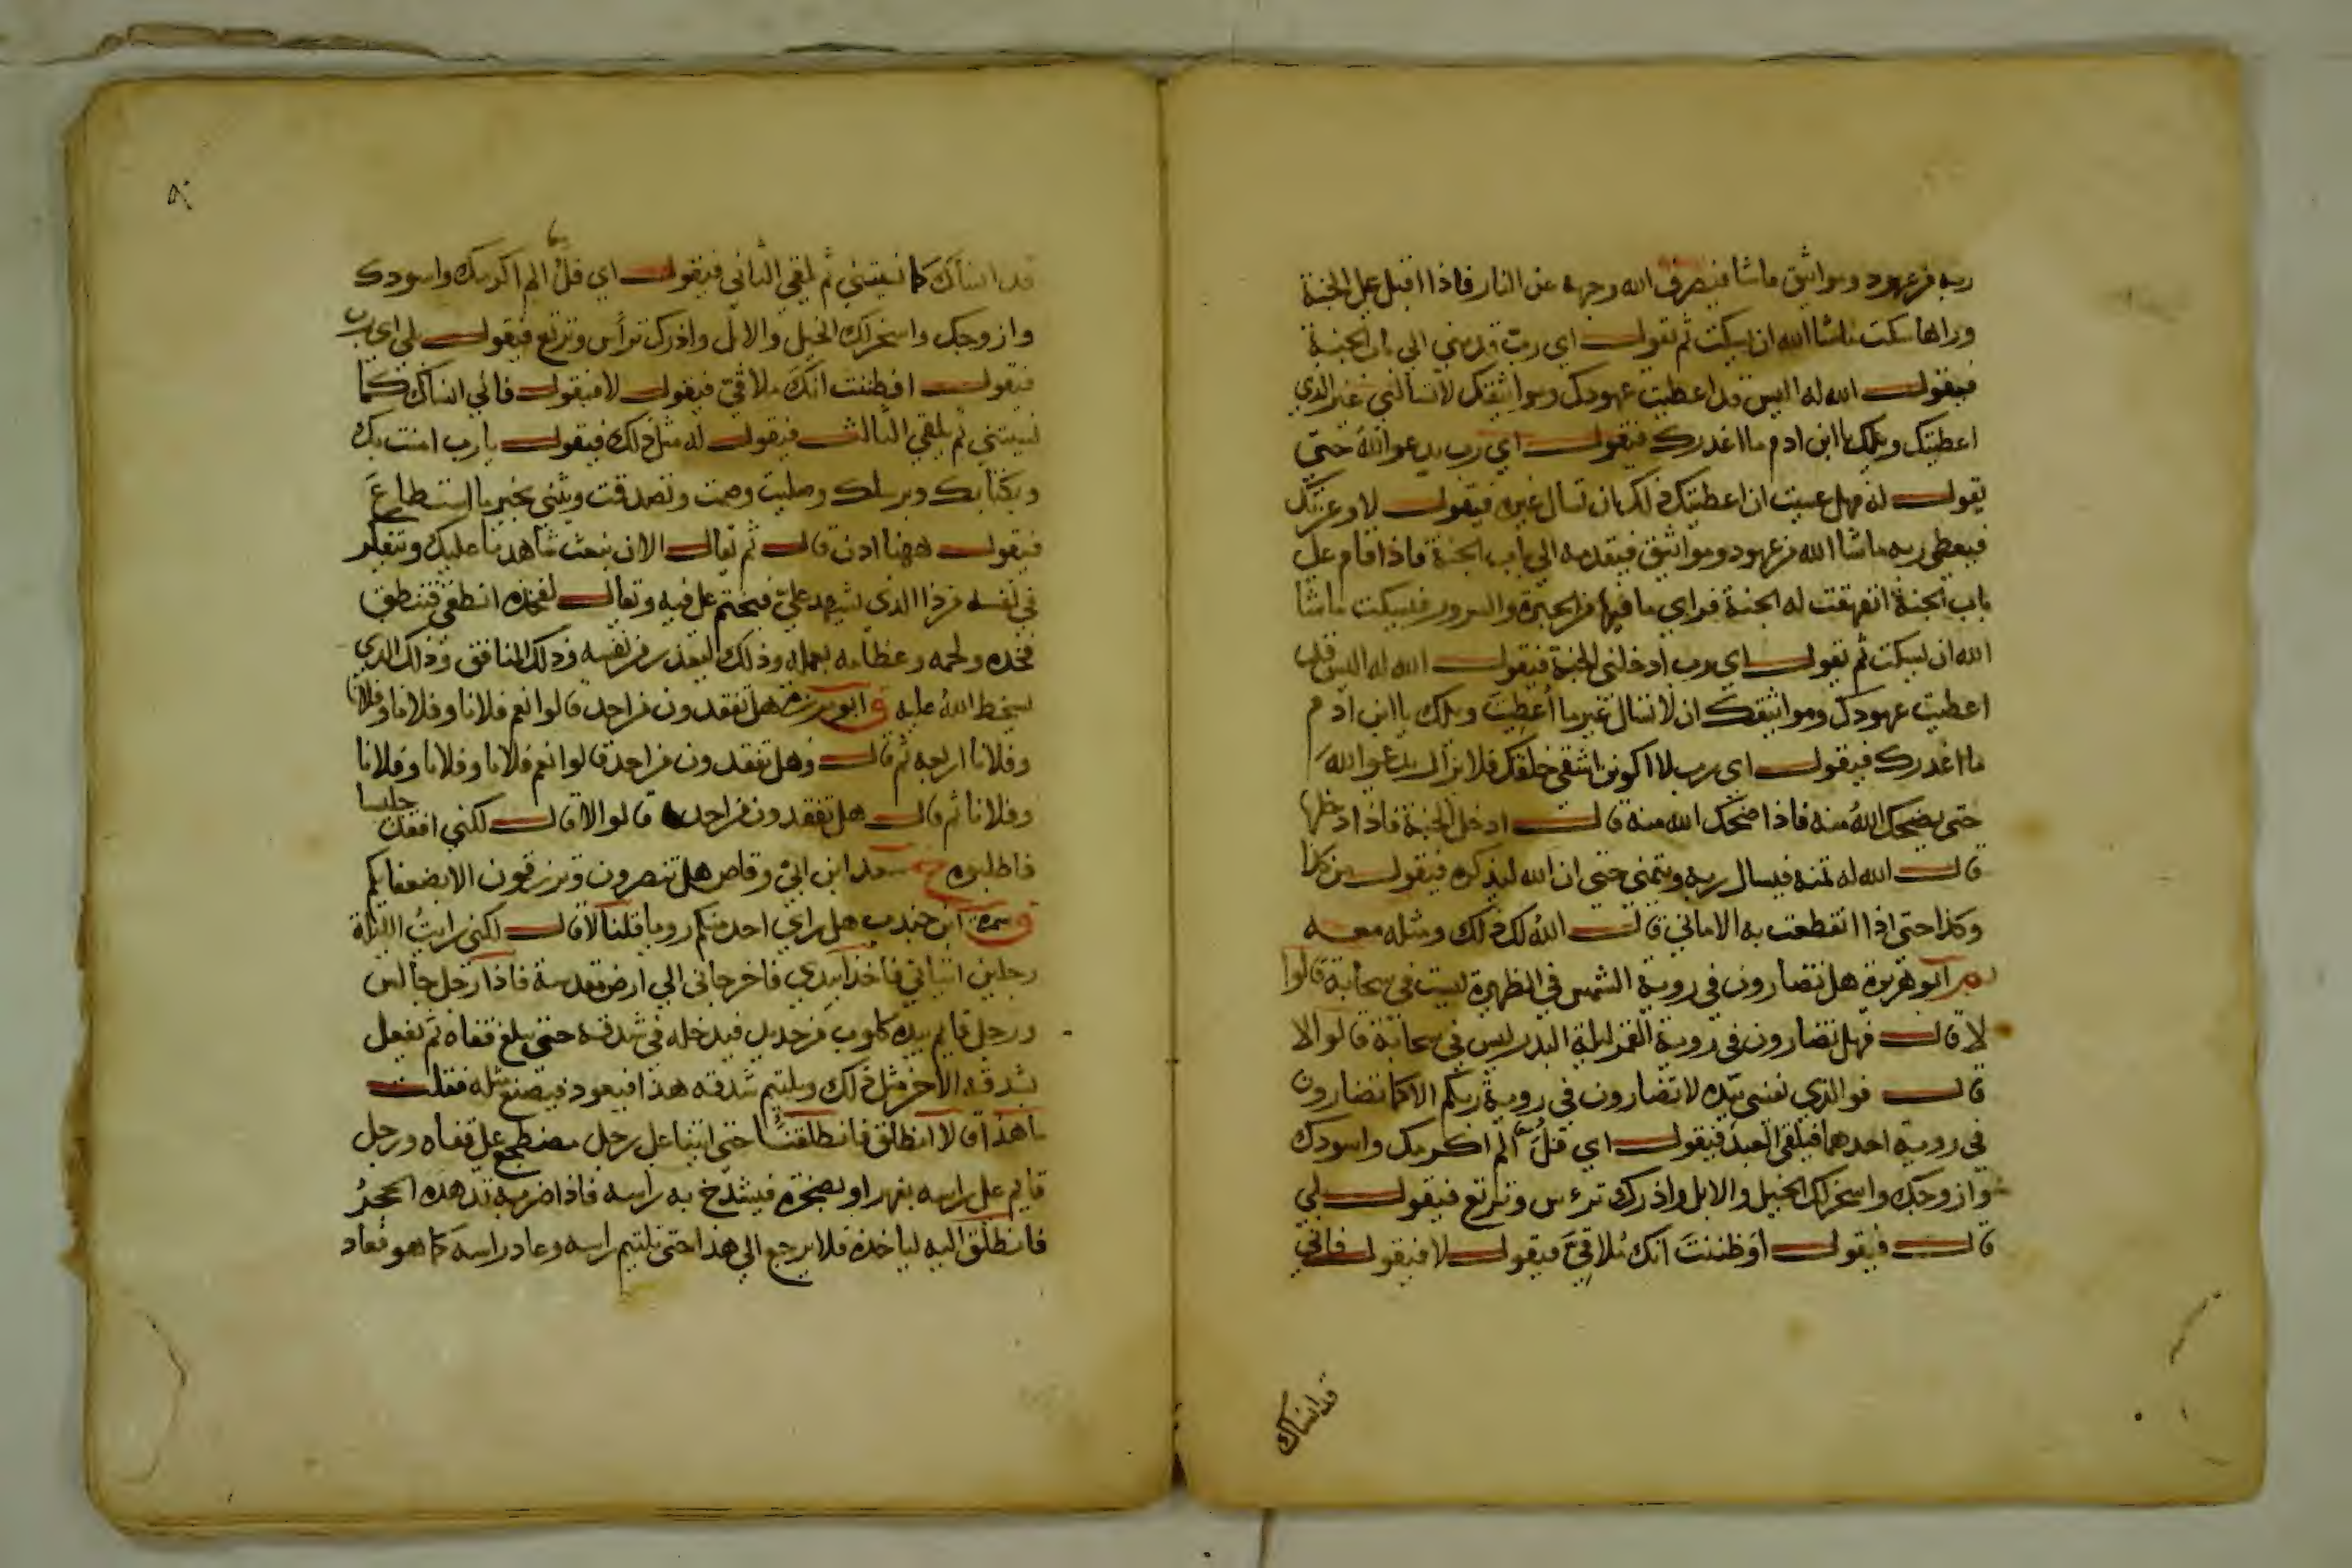 ربه من عهود ومواثيق ماشا فيصرف الله وجهه عن النار فاذا اقبل على الجنة
وراها سكت ماشا الله ان يسكت ثم يقول اي رب قدمني الي باب الجنة
فيقول الله له اليس قد اعطيت عهودك ومواثيقك لا تسالني غير الذي
اعطيتك ويلك يا ابن ادم ما اغدرك فيقول اي رب يدعو الله حتى
يقول له فهل عسيت ان اعطيتك ذلك ان تسال غيره فيقول لا وعزتك
فيعطي ربه ماشا الله من عهود ومواثيق فيقدمه الي باب الجنة فاذا قام على
باب الجنة انفهقت له الجنة فراي ما فيها من الحبرة والسرور فيسكت ماشا
الله ان يسكت ثم يقول اي رب ادخلني الجنة فيقول الله له اليس قد
اعطيت عهودك ومواثيقك ان لا تسال غير ما اعطيت ويلك يا ابن ادم
ما اغدرك فيقول اي رب لا اكونن اشقى خلقك فلا يزال يدعو الله
حتى يضحك الله منه فاذا ضحك الله منه قال ادخل الجنة فاذا دخلها
قال الله له تمنه فيسال ربه ويتمنى حتى ان الله ليذكره فيقول من كذا
وكذا حتى اذا انقطعت به الاماني قال الله لك ذلك ومثله معه
م ابو هريرة هل تضارون في روية الشمس في الظهيرة ليست في سحابة قالوا
لا قال فهل تضارون في روية القمر ليلة البدر ليس في سحابة قالوا لا
قال فوالذي نفسي بيده لا تضارون في روية ربكم الا كما تضارون
في روية احدهما فيلقى العبد فيقول اي فل الم اكرمك واسودك
وازوجك واسخر لك الخيل والابل واذرك ترءس وتربع فيقول بلي
قال فيقول اوظننت انك ملاقي فيقول لا فيقول فاني
قد انساك
قد انساك كما نسيتني ثم يلقي الثاني فيقول اي فل الم اكرمك واسودك
وازوجك واسخر لك الخيل والابل واذرك تراس وتربع فيقول بلي اي رب
فيقول افظننت انك ملاقي فيقول لا فيقول فاني انساك كما
نسيتني ثم يلقي الثالث فيقول له مثل ذلك فيقول يا رب امنت بك
وبكتابك وبرسلك وصليت وصمت وتصدقت ويثني بخير ما استطاع
فيقول ههنا اذن قال ثم يقال الان نبعث شاهدنا عليك ويتفكر
في نفسه من ذا الذي يشهد علي فيختم على فيه ويقال لفخذه انطقي فتنطق
فخذه ولحمه وعظامه بعمله وذلك ليعذر من نفسه وذلك المنافق وذلك الذي
يسخط الله عليه ق ابو برزة هل تفقدون من احد قالوا نعم فلانا وفلانا وفلانا
وفلانا اربعه ثم قال وهل تفقدون من احد قالوا نعم فلانا وفلانا وفلانا
وفلانا ثم قال هل تفقدون من احد قالوا لا قال لكني افقد جليبيبا
فاطلبوه خ سعد ابن ابي وقاص هل تنصرون وترزقون الا بضعفايكم
ق سمرة ابن جندب هل راي احد منكم رويا قلنا لا قال لكني رايت الليلة
رجلين اتياني فاخذا بيدي فاخرجاني الي ارض مقدسة فاذا رجل جالس
ورجل قايم بيده كلوب من حديد فيدخله في شدقه حتى يبلغ قفاه ثم يفعل
بشدقه الاخر مثل ذلك ويلتيم شدقه هذا فيعود فيصنع مثله فقلت
ما هذا قالا انطلق فانطلقنا حتى اتينا على رجل مضطجع على قفاه ورجل
قايم على راسه بفهر او بصخرة فيشدخ به راسه فاذا ضربه تدهده الحجر
فانطلق اليه لياخذه فلا يرجع الي هذا حتى يلتيم راسه وعاد راسه كما هو فعاد